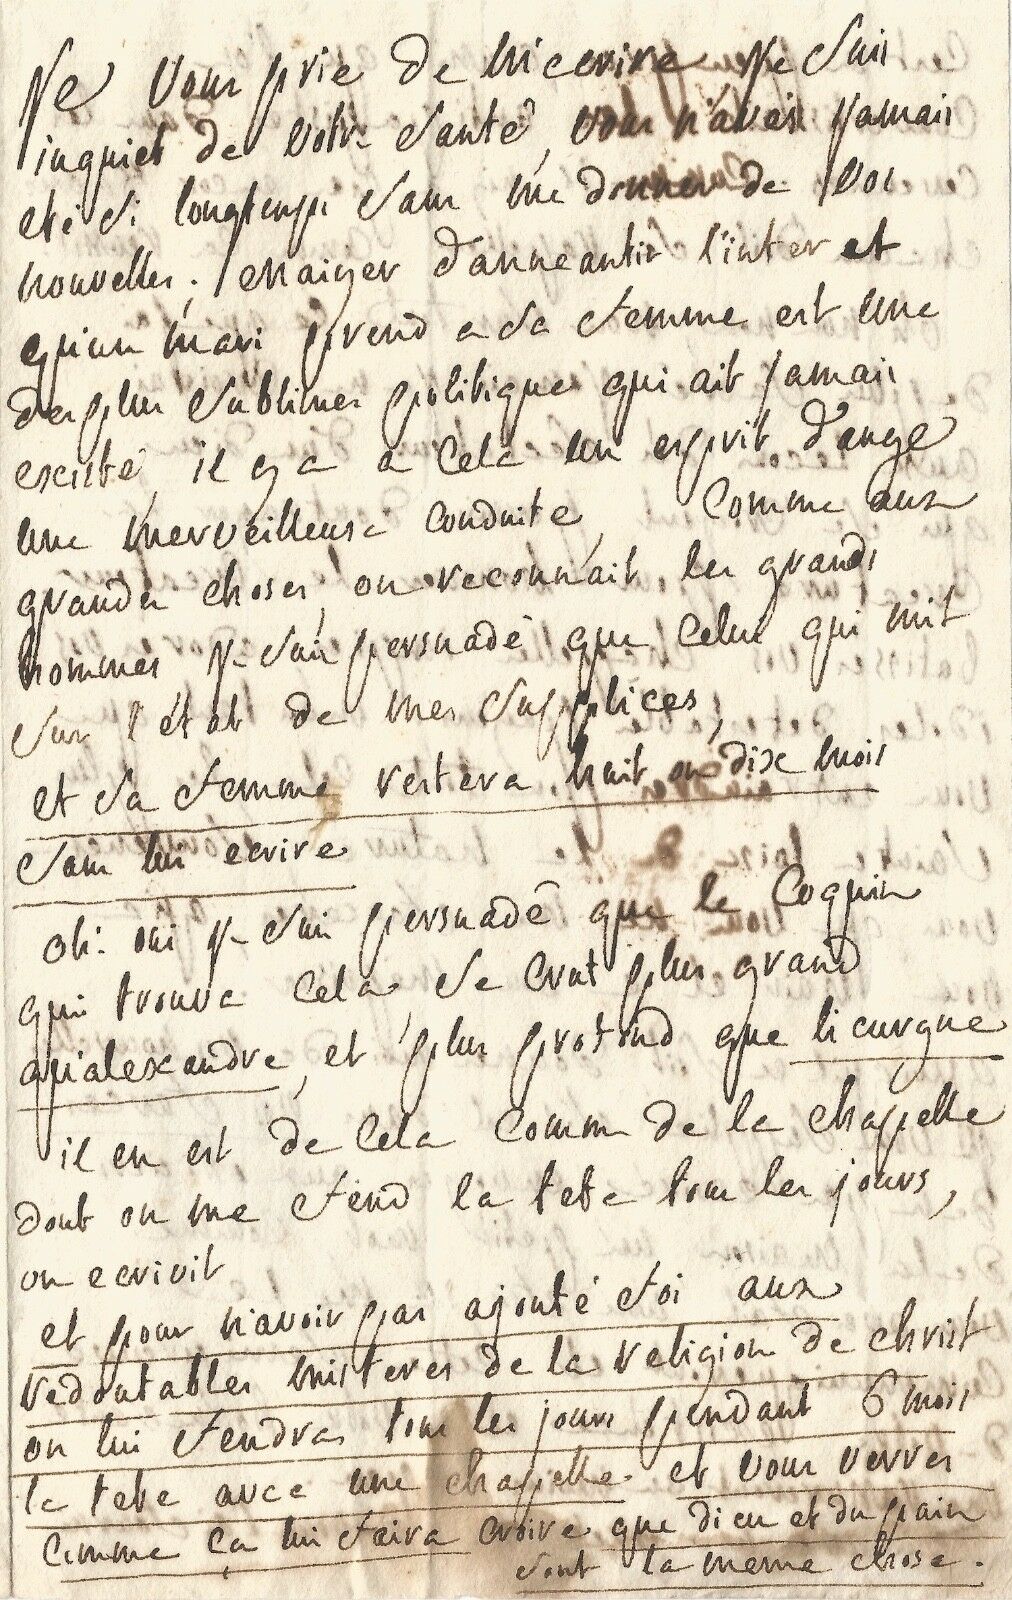 Je vous prie de m'ecrire je suis
inquiet de votre santé, vous n'avés jamais
eté si longtemps sans me donner de vos
nouvelles; enaiger d'anneantir l'inter et
qu'un mari prend a sa femme est une
des plus sublimes politique qui ait jamais
existé, il y a a cela un esprit d'ange
une merveilleuse conduite, comme aux
grandes choses, on reconnait les grands
hommes je suis persuadé que celui qui mit
sur l'état de mes supplices,
et sa femme restera huit ou dix mois
sans lui ecrire
oh: oui je suis persuadé que le coquin
qui trouva cela, se crut plus grand
qu'alexandre, et plus profond que licurgue
il en est de cela comme de la chapelle
dont on me fend la tete tous les jours,
on ecrivit
et pour n'avoir pas ajouté foi aux
redoutables misteres de la religion de christ
on lui fendras tous les jours pendant 6 mois
la tete avec une chapelle et vous verres
comme ça lui faira croire que dieu et du pain
sont la meme chose.